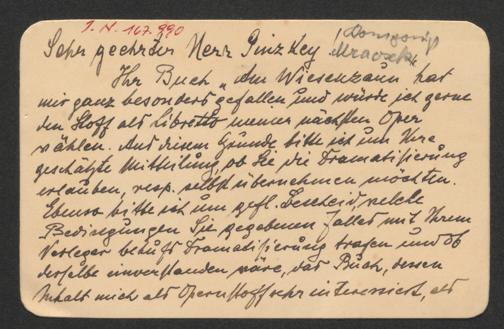 I. N. 167.990
Komponist
Mraczek
Sehr geehrter Herr Ginzkey!
Ihr Buch „Am Wiesenzaun" hat
mir ganz besonders gefallen und würde ich gerne
den Stoff als Libretto meiner nächsten Oper
wählen. Aus diesem Grunde bitte ich um Ihre
geschätzte Mitteilung, ob Sie die Dramatisierung
erlauben, resp. selbst übernehmen möchten.
Ebenso bitte ich um gefl. Bescheid, welche
Bedingungen Sie gegebenen Falles mit Ihrem
Verleger behufs Dramatisierung trafen und ob
derselbe einverstanden wäre, das Buch, dessen
Inhalt mich als Opernstoff sehr interessiert, als